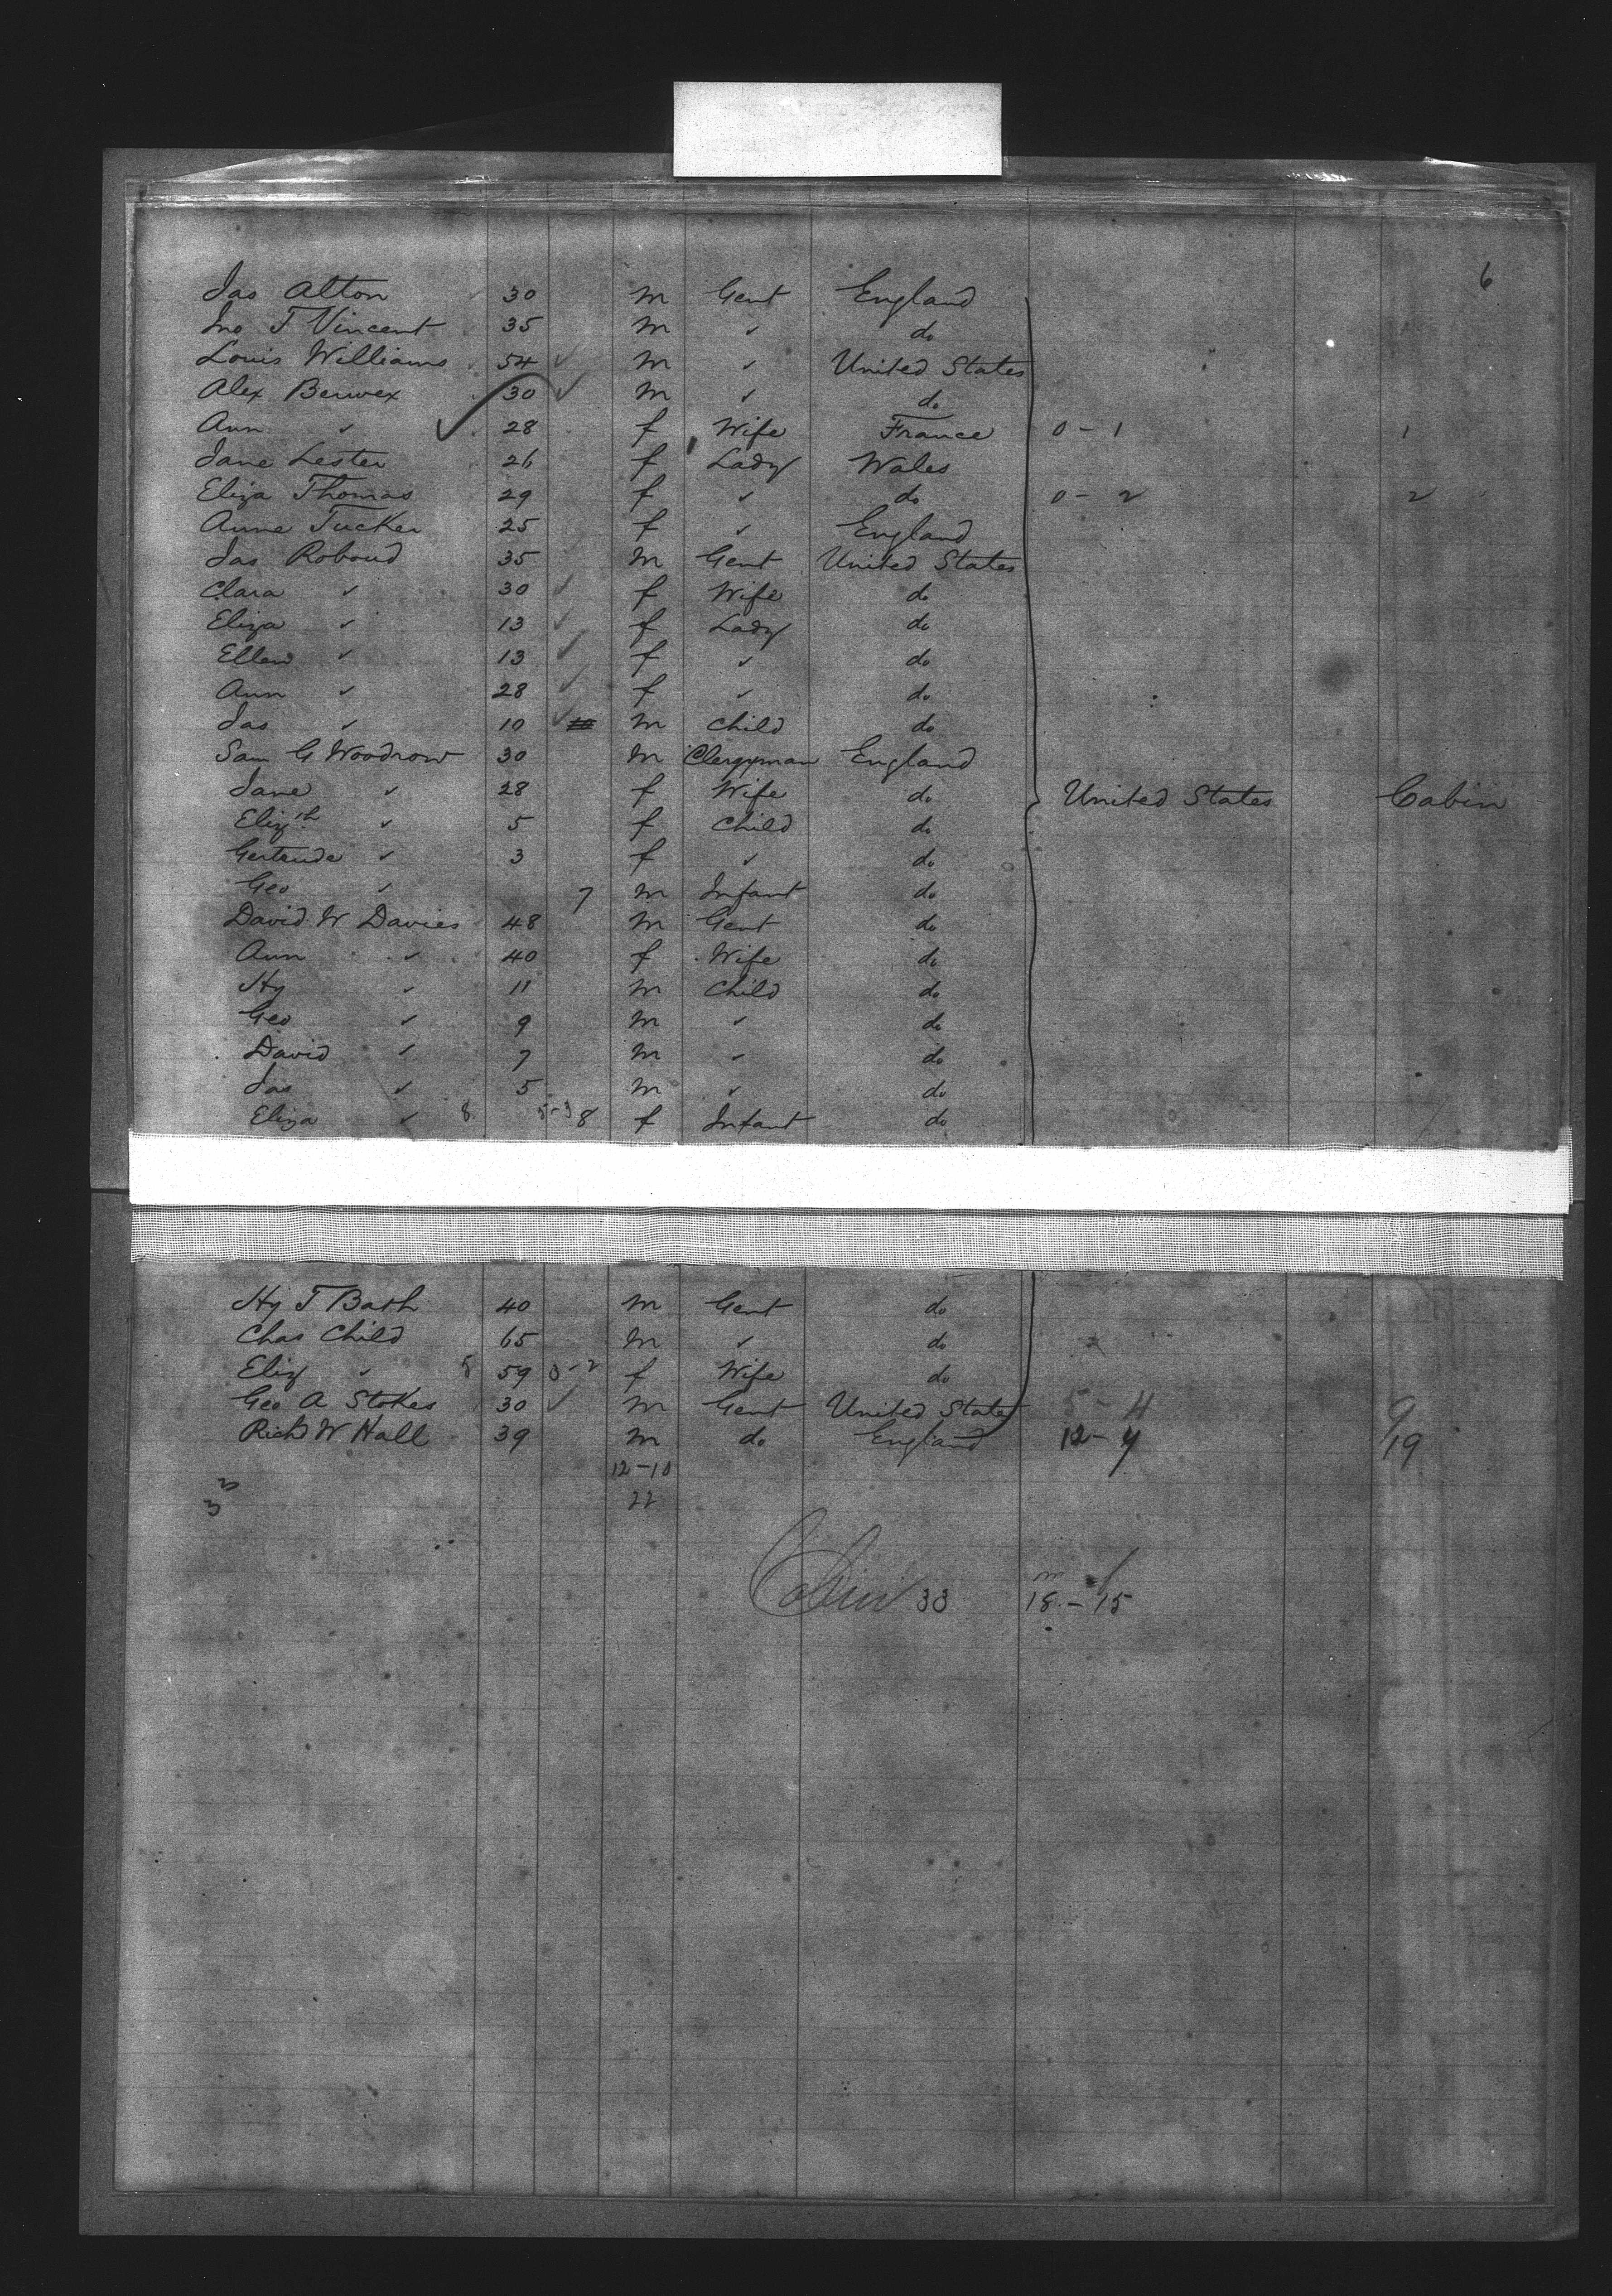 6
Jas Alton 30 m Gent England
Jno T Vincent 35 m " do
Louis Williams 54 ✓ m " United States
Alex Berwex 30 ✓ m " do
Ann " 28 f Wife France 0 - 1 1
Jane Lester 26 f Lady Wales
Eliza Thomas 29 f " do 0 - 2 2
Anne Tucker 25 f " England
Jas Roboud 35 m Gent United States
Clara " 30 ✓ f Wife do
Eliza " 13 ✓ f Lady do
Ellen " 13 ✓ f " do
Ann " 28 ✓ f " do
Jas " 10 ✓ m Child do
Sam G Woodrow 30 m Clergyman England
Jane " 28 f Wife do United States Cabin
Elizth " 5 f Child do
Gertrude " 3 f " do
Geo " 7 m Infant do
David W Davies 48 m Gent do
Ann " 40 f Wife do
Hy " 11 m Child do
Geo " 9 m " do
David " 7 m " do
Jas " 5 m " do
Eliza " 8 5-3 8 f Infant do
Hy T Bath 40 m Gent do
Chas Child 65 m " do
Eliz " 8 59 3-2 f Wife do
Geo A Stokes 30 ✓ m Gent United States 5 - 4 9
Richd W Hall 39 m do England 12 - 7 19
12-10
22
3
3
Cabin 33 m f
18 - 15